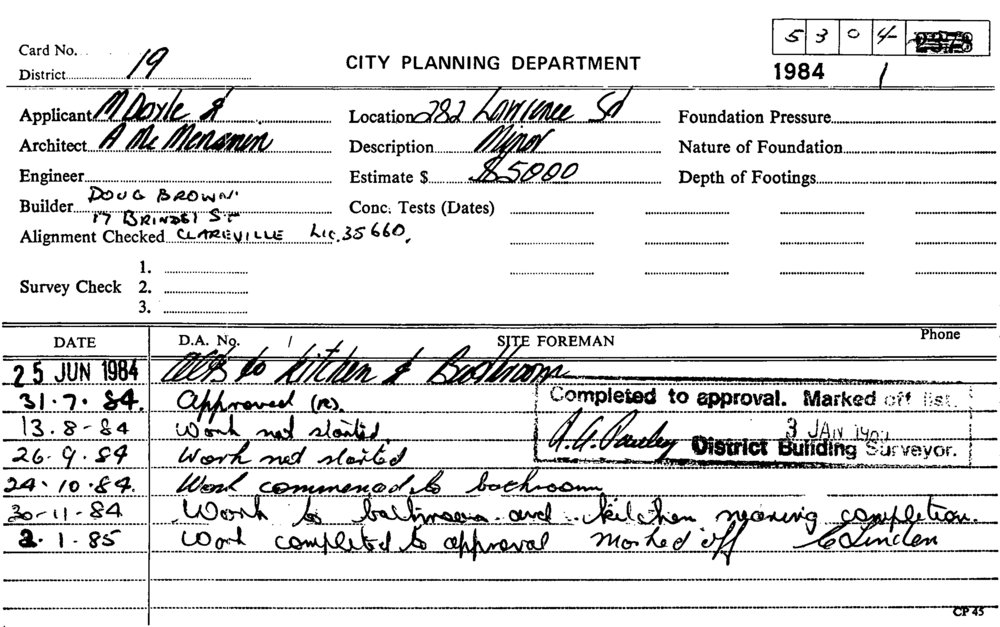 5 3 0 4
Card No.
District 19
CITY PLANNING DEPARTMENT
1984 /
Applicant M Doyle &
Location 282 Lawrence St
Foundation Pressure
Architect A Mc Menamen
Description Minor
Nature of Foundation
Engineer
Estimate $ $5000
Depth of Footings
Builder DOUG BROWN
17 BRINDEI ST
Conc. Tests (Dates)
Alignment Checked CLAREVILLE Lic. 35660.
1.
Survey Check 2.
3.
DATE D.A. No. / SITE FOREMAN Phone
25 JUN 1984 to Kitchen & Bathroom
31.7.84. Approved (R).
Completed to approval. Marked off list.
13.8-84 Work not started
3 JAN
District Building Surveyor.
26.9.84 Work not started
24.10.84. Work commenced to bathroom
30-11-84 Work to bathroom and kitchen nearing completion.
2.1.85 Work completed to approval Marked off C Linden
CP 45